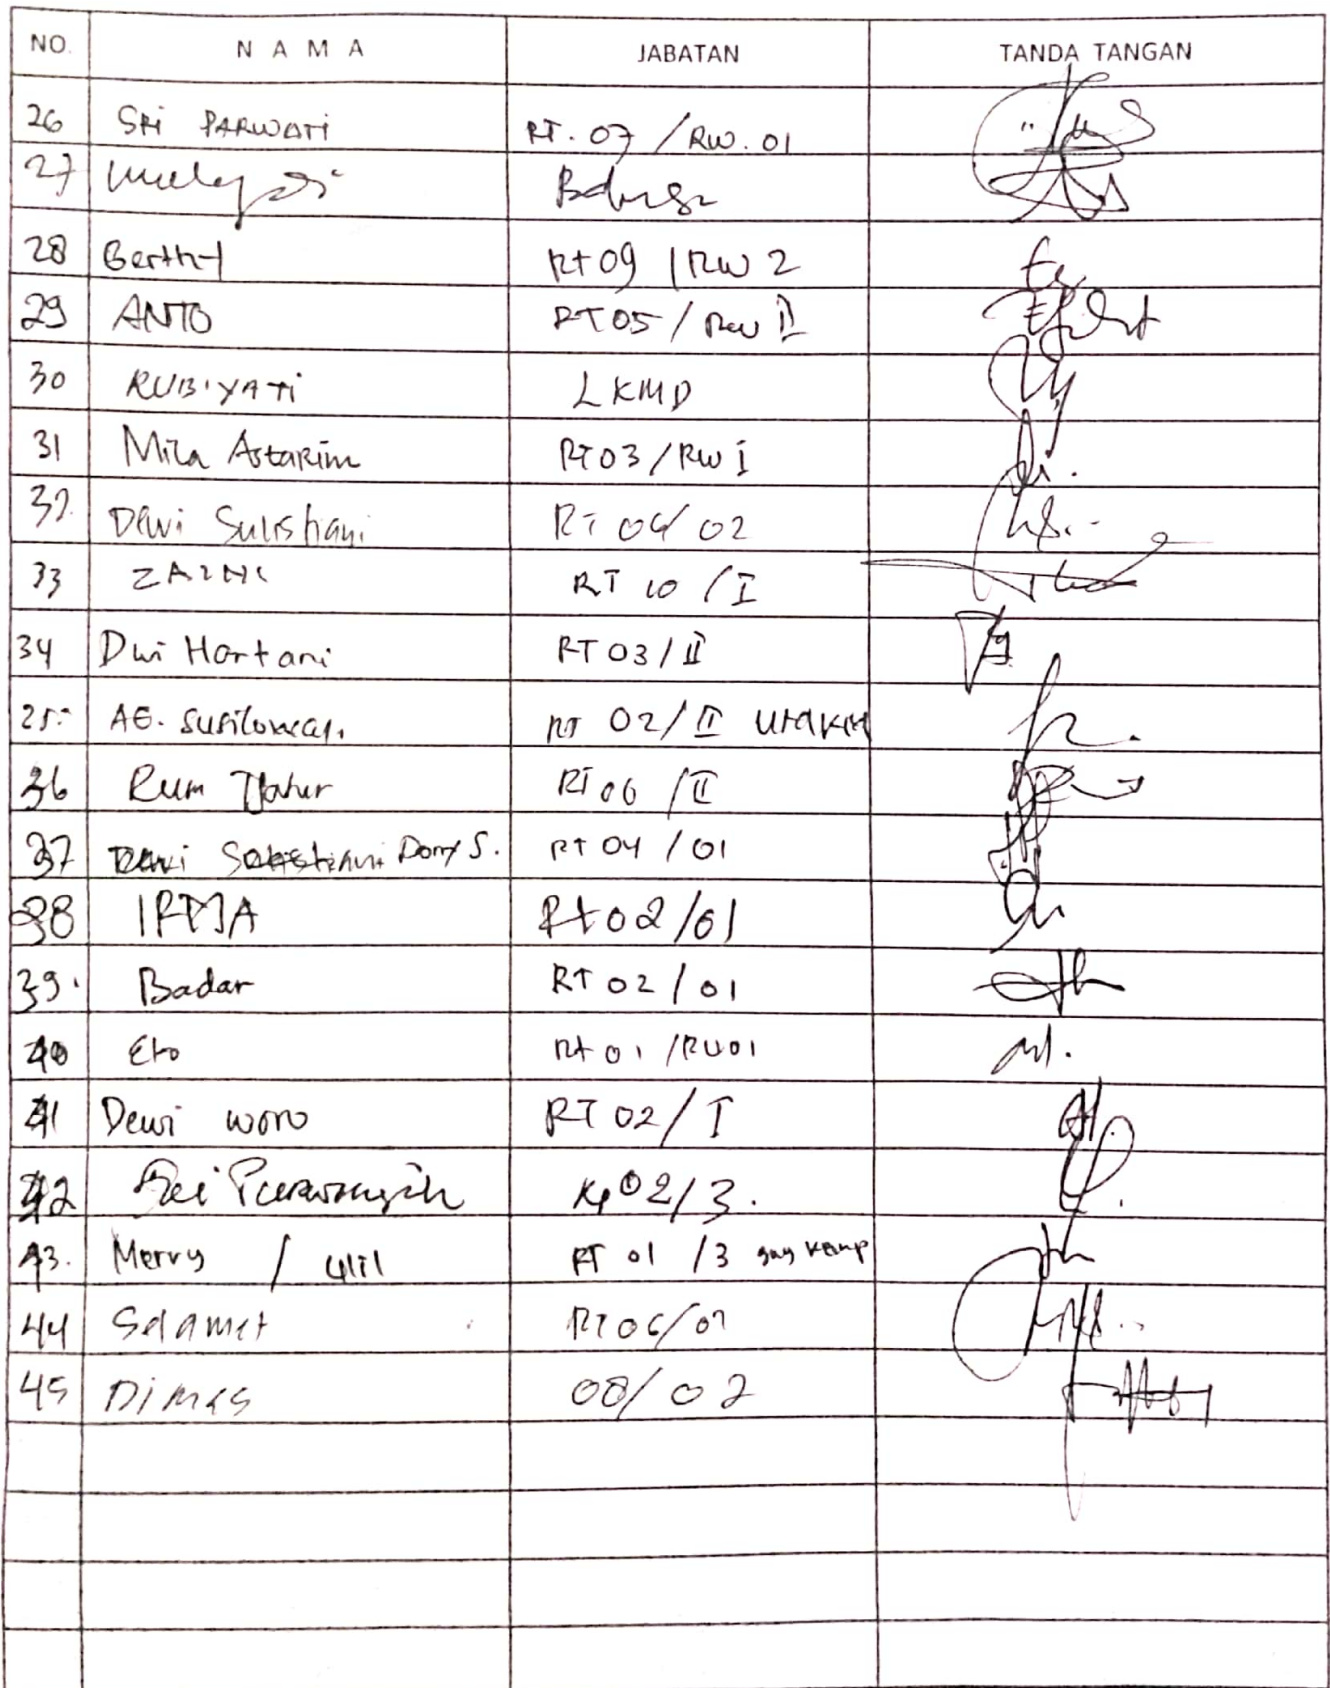 NO. N A M A JABATAN TANDA TANGAN
26 SRI PARWATI RT. 07 / RW. 01
27 Mulyadi Babinsa
28 Berth RT 09 / RW 2
29 ANTO RT 05 / RW II
30 RUBIYATI LKMD
31 Mila Astarini RT 03 / RW I
32. Dewi Sulishani RT 04/ 02
33 ZAINI RT 10 / I
34 Dwi Hartani RT 03 / II
35. AE. Susilowati RT 02 / II
36 Rum RT 06 / II
37 Dony S. RT 04 / 01
38 IRMA Rt 02 /01
39. Badar RT 02 / 01
40 Eko Rt 01 /RW01
41 Dewi Woro RT 02 / I
42 Sri 02/3.
43. Merry / Ulil RT 01 /3
44 Selamet RT 06/01
45 Dimas 08/ 02